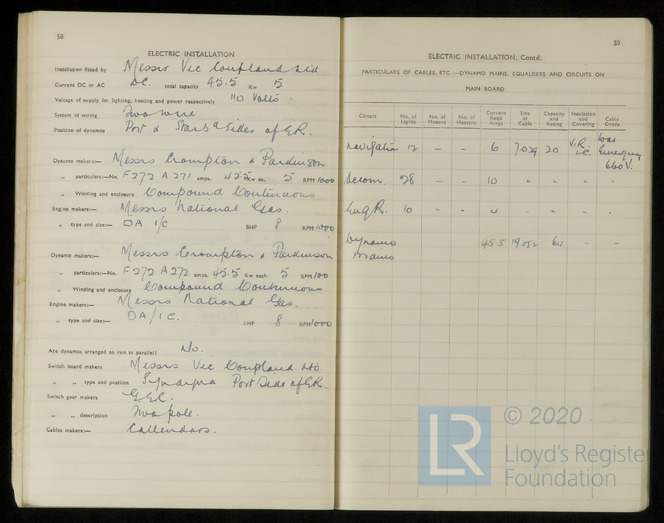 58
ELECTRIC INSTALLATION
Installation fitted by Messrs Vic Coupland Ltd
Current DC or AC DC. total capacity 45.5 Kw 5
Voltage of supply for lighting, heating and power respectively 110 Volts.
System of wiring Two wire
Position of dynamos Port & Starbd Sides of E.R.
Dynamo makers:— Messrs Crompton & Parkinson
„ particulars:—No. F272 A271 amps. 45.5 Kw ea. 5 RPM 1000
„ Winding and enclosure Compound Continuous
Engine makers:— Messrs National Gas.
„ type and size:— DA 1C BHP 8 RPM 1000
Dynamo makers:— Messrs Crompton & Parkinson
„ particulars:—No. F272 A272 amps. 45.5 Kw each 5 RPM 100
„ Winding and enclosure Compound Continuous
Engine makers:— Messrs National Gas.
„ type and size:— DA/1C. BHP 8 RPM 1000
Are dynamos arranged to run in parallel? No.
Switch board makers Messrs Vic Coupland Ltd
„ „ type and position Port Side of E.R.
Switch gear makers G.E.C.
„ „ description Two pole.
Cables makers:— Callendars.
59
ELECTRIC INSTALLATION, Contd.
PARTICULARS OF CABLES, ETC.—DYNAMO MAINS, EQUALISERS AND CIRCUITS ON
MAIN BOARD
Circuit No. of Lights No. of Motors No. of Heaters Current Read Amps Size of Cable Capacity and Rating Insulation and Covering Cable Grade
Navigation 12 – – 6 7.029 20 V.R. L.C. 660 V.
Accom. 28 – – 10 - - - -
Eng R. 10 - - 4 - - - .
Dynamo Mains 45.5 19.052 64 - -
LR © 2020
Lloyd's Register
Foundation